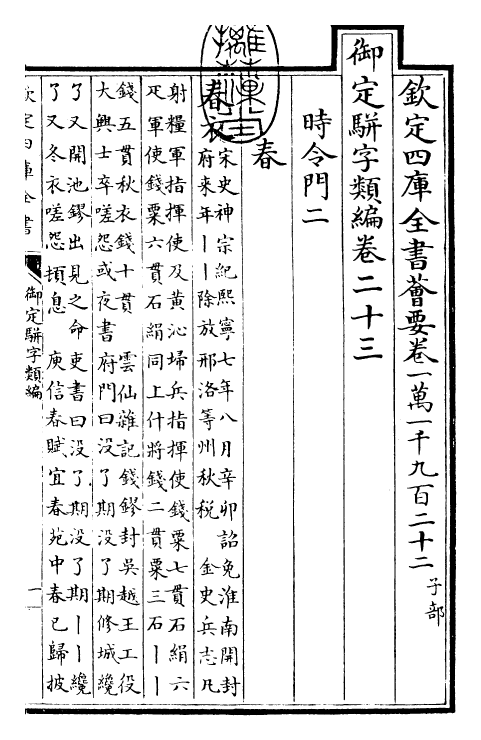 欽定四庫全書薈要卷一萬一千九百二十二 子部
御定駢字類編卷二十三
時令門二
春
春衣
宋史神宗紀熙寧七年八月辛卯詔免淮南開封
府來年丨丨除放邢洛等州秋税 金史兵志凡
射糧軍指揮使及黃沁埽兵指揮使錢粟七貫石絹六
疋軍使錢粟六貫石絹同上什將錢二貫粟三石丨丨
錢五貫秋衣錢十貫 雲仙雜記錢鏐封吳越王工役
大興士卒嗟怨或夜書府門曰没了期没了期修城纔
了又開池鏐出見之命吏書曰没了期没了期丨丨纔
了又冬衣嗟怨頓息 庾信春賦宜春苑中春已歸披
欽定四庫全書
御定駢字類編
一